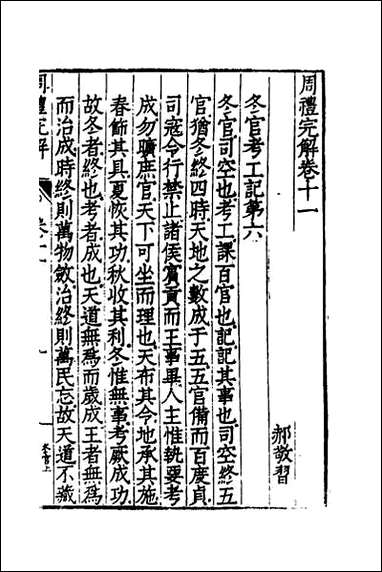 周禮完解卷十一
郝敬習
冬官考工記第六
冬官司空也考工課百官也記記其事也司空終五
官猶冬終四時天地之數成于五五官備而百度貞
司寇令行禁止諸侯賓貢而王事畢人主惟執要考
成勿曠庶官天下可坐而理也天布其令地承其施
春飾其具夏恢其功秋收其利冬惟無事考厥成功
故冬者終也考者成也天道無爲而歲成王者無爲
而治成時終則萬物斂治終則萬民忘故天道不藏
周禮完解
卷十一